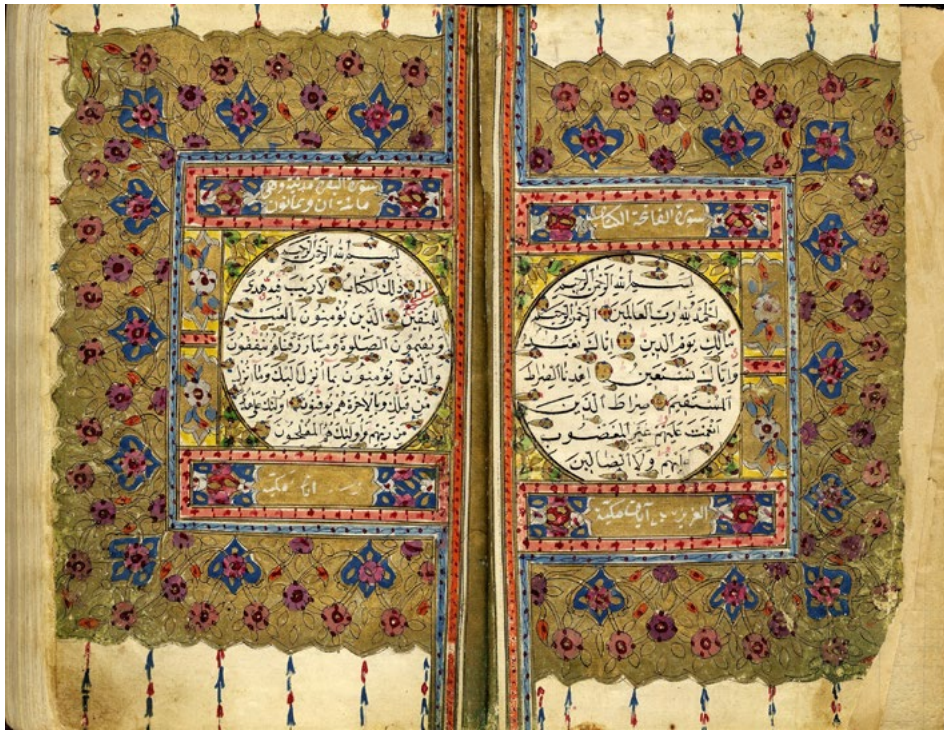 سورة الفاتحة الكتاب
بسم الله الرحمن الرحيم
الحمد لله رب العالمين الرحمن الرحيم
مالك يوم الدين اياك نعبد
واياك نستعين اهدنا الصراط
المستقيم صراط الذين
انعمت عليهم غير المغضوب
عليهم ولا الضالين
آيات مكية
سورة البقرة مدنية وهي
مائتان وثمانون
بسم الله الرحمن الرحيم
الم ذلك الكتاب لا ريب فيه هدى
للمتقين الذين يؤمنون بالغيب
ويقيمون الصلوة ومما رزقناهم ينفقون
والذين يؤمنون بما انزل اليك وما انزل
من قبلك وبالاخرة هم يوقنون اولئك على هدى
من ربهم واولئك هم المفلحون